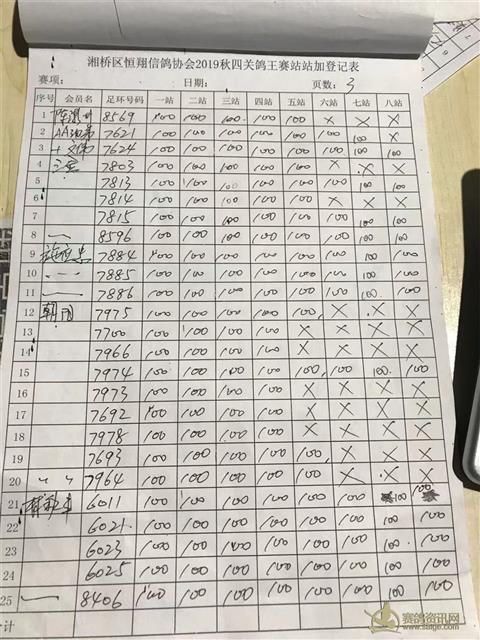 湘桥区恒翔信鸽协会2019秋四关鸽王赛站站加登记表
赛项: 日期: 页数: 3
序号 会员名 足环号码 一站 二站 三站 四站 五站 六站 七站 八站
1 8569 100 100 100 100 100 × × ×
2 7621 100 100 100 100 100 100 100 ×
3 7624 100 100 100 100 100 100 100 ×
4 7803 100 100 100 100 100 × × ×
5 7813 100 100 100 100 100 100 100 ×
6 7814 100 100 100 100 100 × × ×
7 7815 100 100 100 100 100 100 100 100
8 8596 100 100 100 100 100 100 100 ×
9 7884 100 100 100 100 100 100 100 100
10 7885 100 100 100 100 100 100 100 100
11 7886 100 100 100 100 100 100 100 100
12 7975 100 100 100 100 100 × × ×
13 7700 100 100 100 100 × × × ×
14 7966 100 100 100 100 × × × ×
15 7974 100 100 100 100 100 100 100 100
16 7973 100 100 100 100 × × × ×
17 7692 100 100 100 100 × × × ×
18 7978 100 100 100 100 × × × ×
19 7693 100 100 100 100 100 × × ×
20 〃 〃 7964 100 100 100 100 100 × × ×
21 6011 100 100 100 100 100 100 100 100
22 6021 100 100 100 100 100 100 100 100
23 6023 100 100 100 100 100 100 100 100
24 6025 100 100 100 100 100 100 100 100
25 8406 100 100 100 100 100 100 100 100
计
赛鸽资讯网
www.saige.com